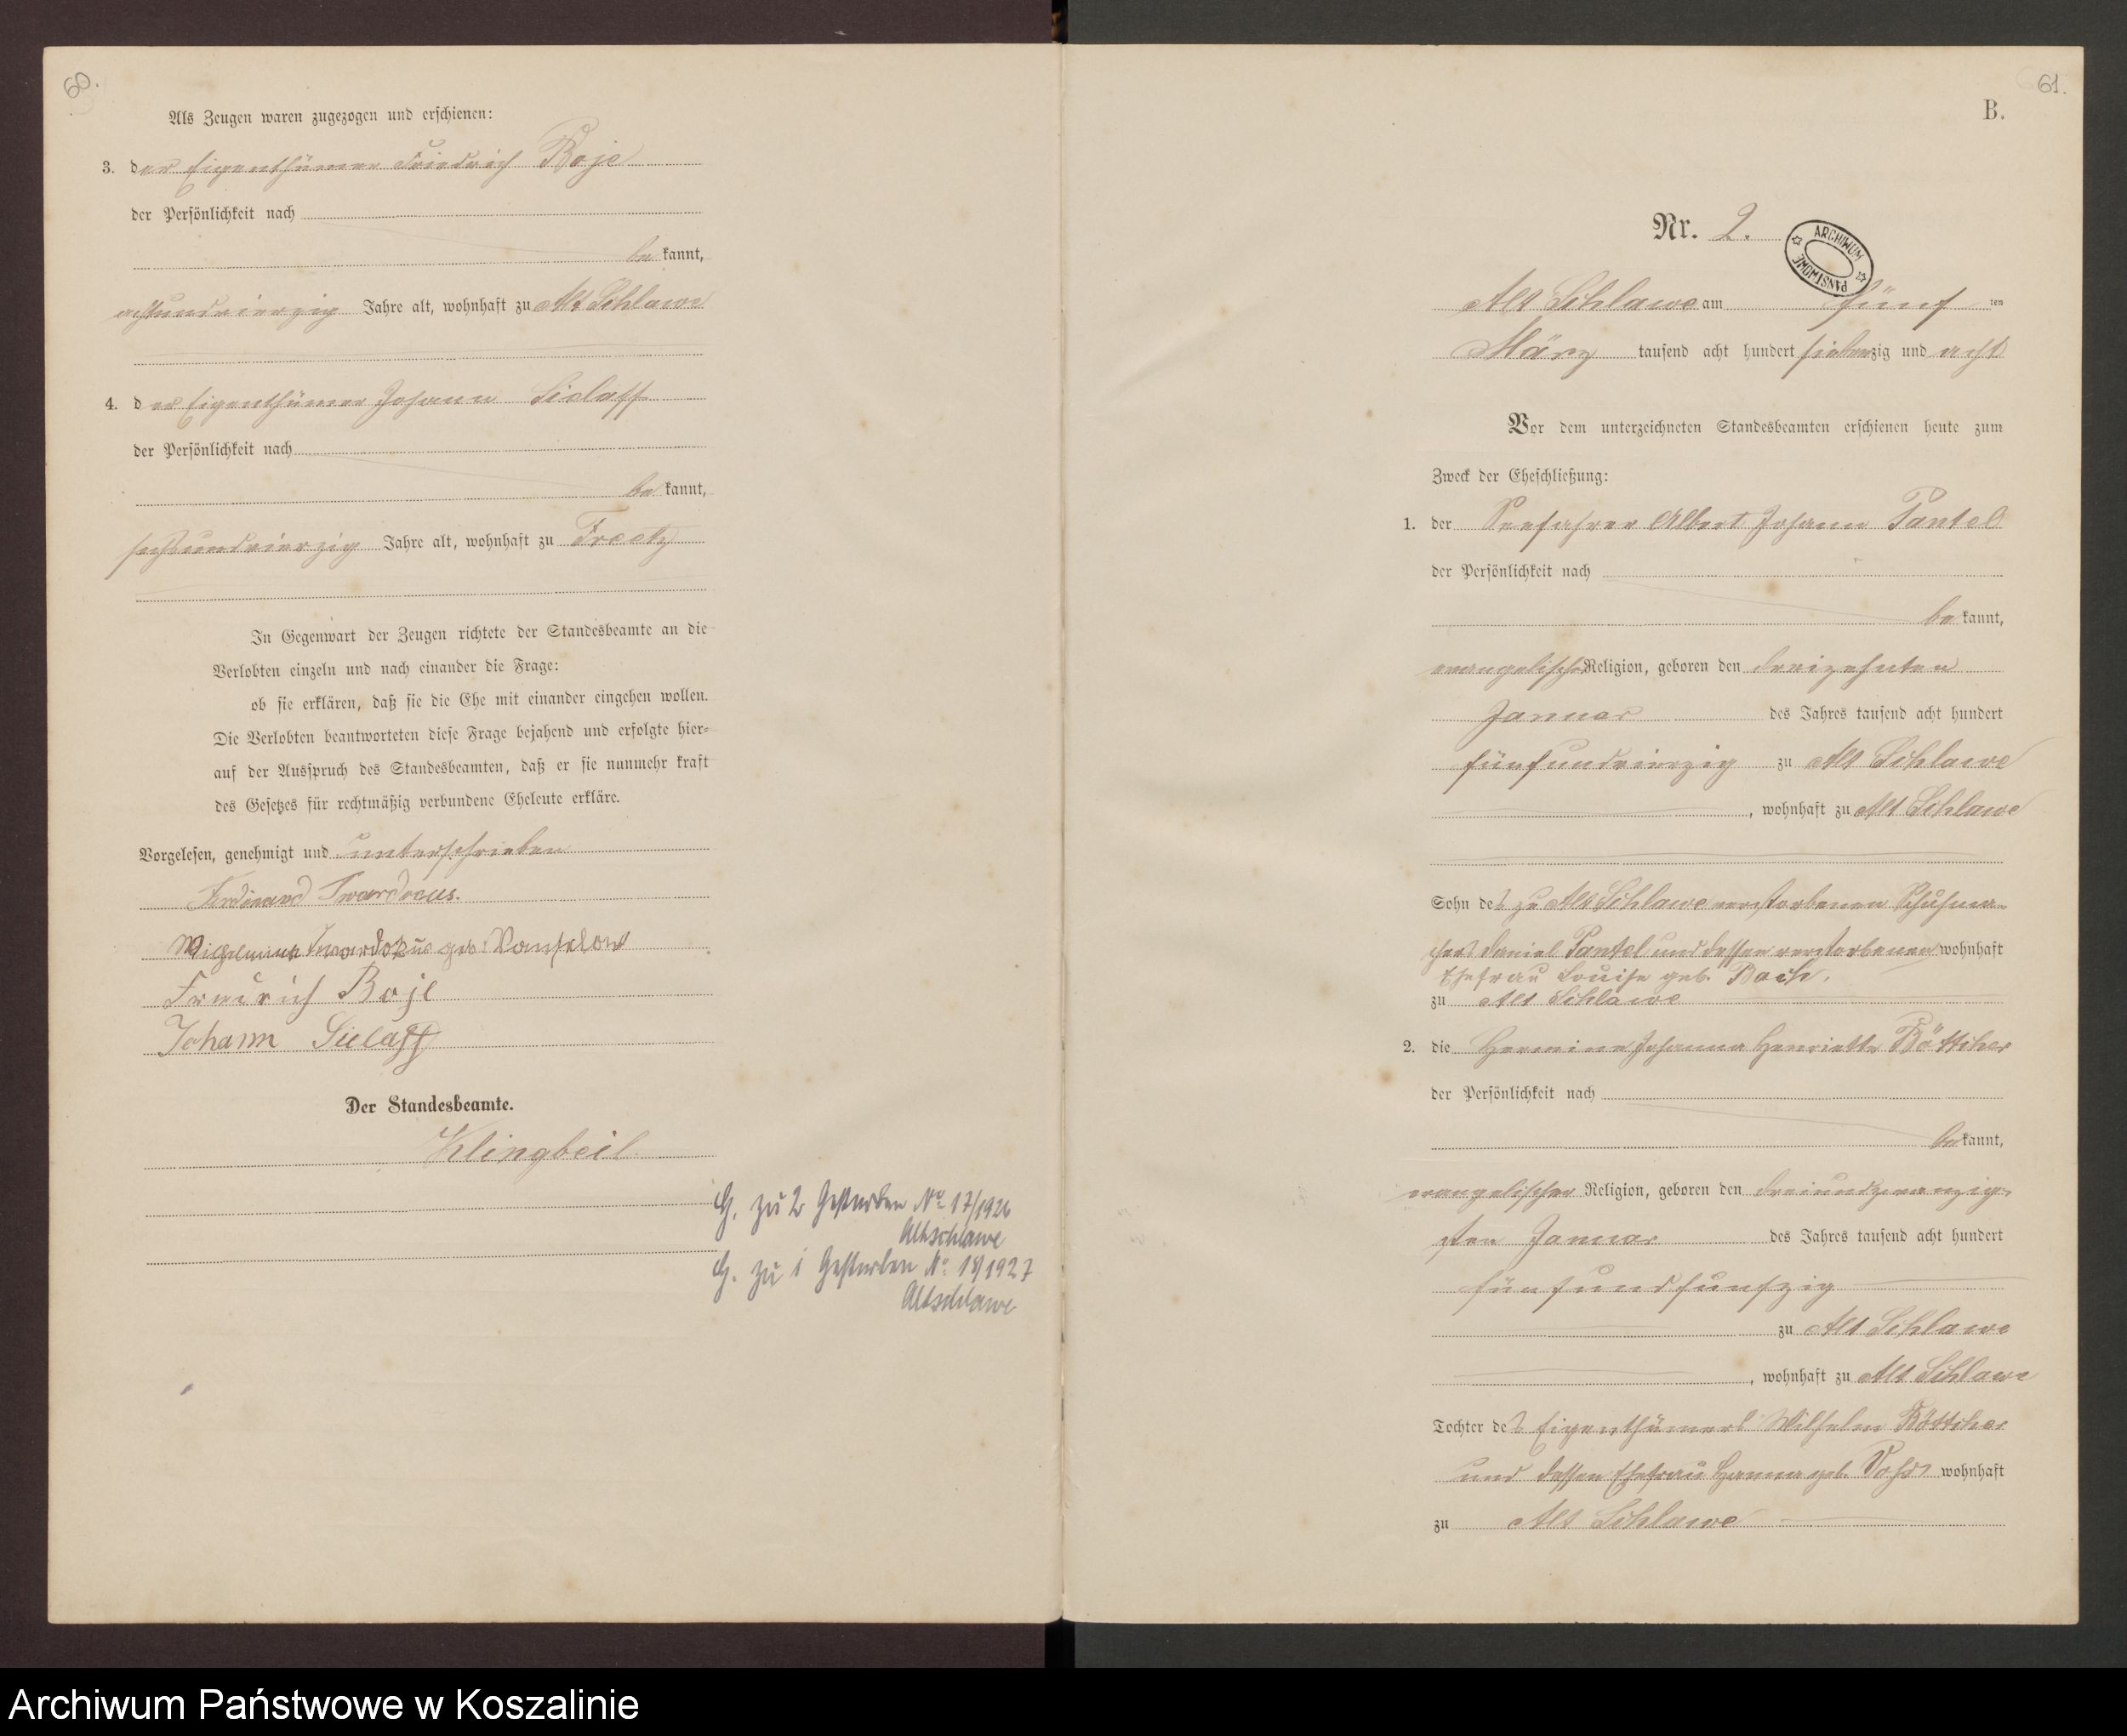 60.
Als Zeugen waren zugezogen und erschienen:
3. der Eigenthümer Friedrich Boje
der Persönlichkeit nach
bekannt,
achtundvierzig Jahre alt, wohnhaft zu Alt Schlawe
4. der Eigenthümer Johann Sielaff
der Persönlichkeit nach
bekannt,
sechsundvierzig Jahre alt, wohnhaft zu Freetz
In Gegenwart der Zeugen richtete der Standesbeamte an die
Verlobten einzeln und nach einander die Frage:
ob sie erklären, daß sie die Ehe mit einander eingehen wollen.
Die Verlobten beantworteten diese Frage bejahend und erfolgte hier-
auf der Ausspruch des Standesbeamten, daß er sie nunmehr kraft
des Gesetzes für rechtmäßig verbundene Eheleute erkläre.
Vorgelesen, genehmigt und unterschrieben
Ferdinand
geb.
Friedrich Boje
Johann Sielaff
Der Standesbeamte.
Klingbeil
G. zu 2 Gestorben No 17/1926
Altschlawe
G. zu 1 Gestorben No 18/1927
Altschlawe
61.
B.
Nr. 2.
ARCHIWUM PAŃSTWOWE
Alt Schlawe am fünften
März tausend acht hundert siebenzig und acht
Vor dem unterzeichneten Standesbeamten erschienen heute zum
Zweck der Eheschließung:
1. der Seefahrer Albert Johann Pantel
der Persönlichkeit nach
bekannt,
evangelischer Religion, geboren den dreizehnten
Januar des Jahres tausend acht hundert
fünfundvierzig zu Alt Schlawe
, wohnhaft zu Alt Schlawe
Sohn des zu Alt Schlawe verstorbenen Schuhma-
chers Daniel Pantel und dessen verstorbenen wohnhaft
Ehefrau Louise geb. Bach.
zu Alt Schlawe
2. die Hermine Johanna Henriette Böttcher
der Persönlichkeit nach
bekannt,
evangelischer Religion, geboren den dreiundzwanzig-
sten Januar des Jahres tausend acht hundert
fünfundfünfzig
zu Alt Schlawe
, wohnhaft zu Alt Schlawe
Tochter des Eigenthümers Wilhelm Böttcher
und dessen Ehefrau Hanna geb. wohnhaft
zu Alt Schlawe
Archiwum Państwowe w Koszalinie